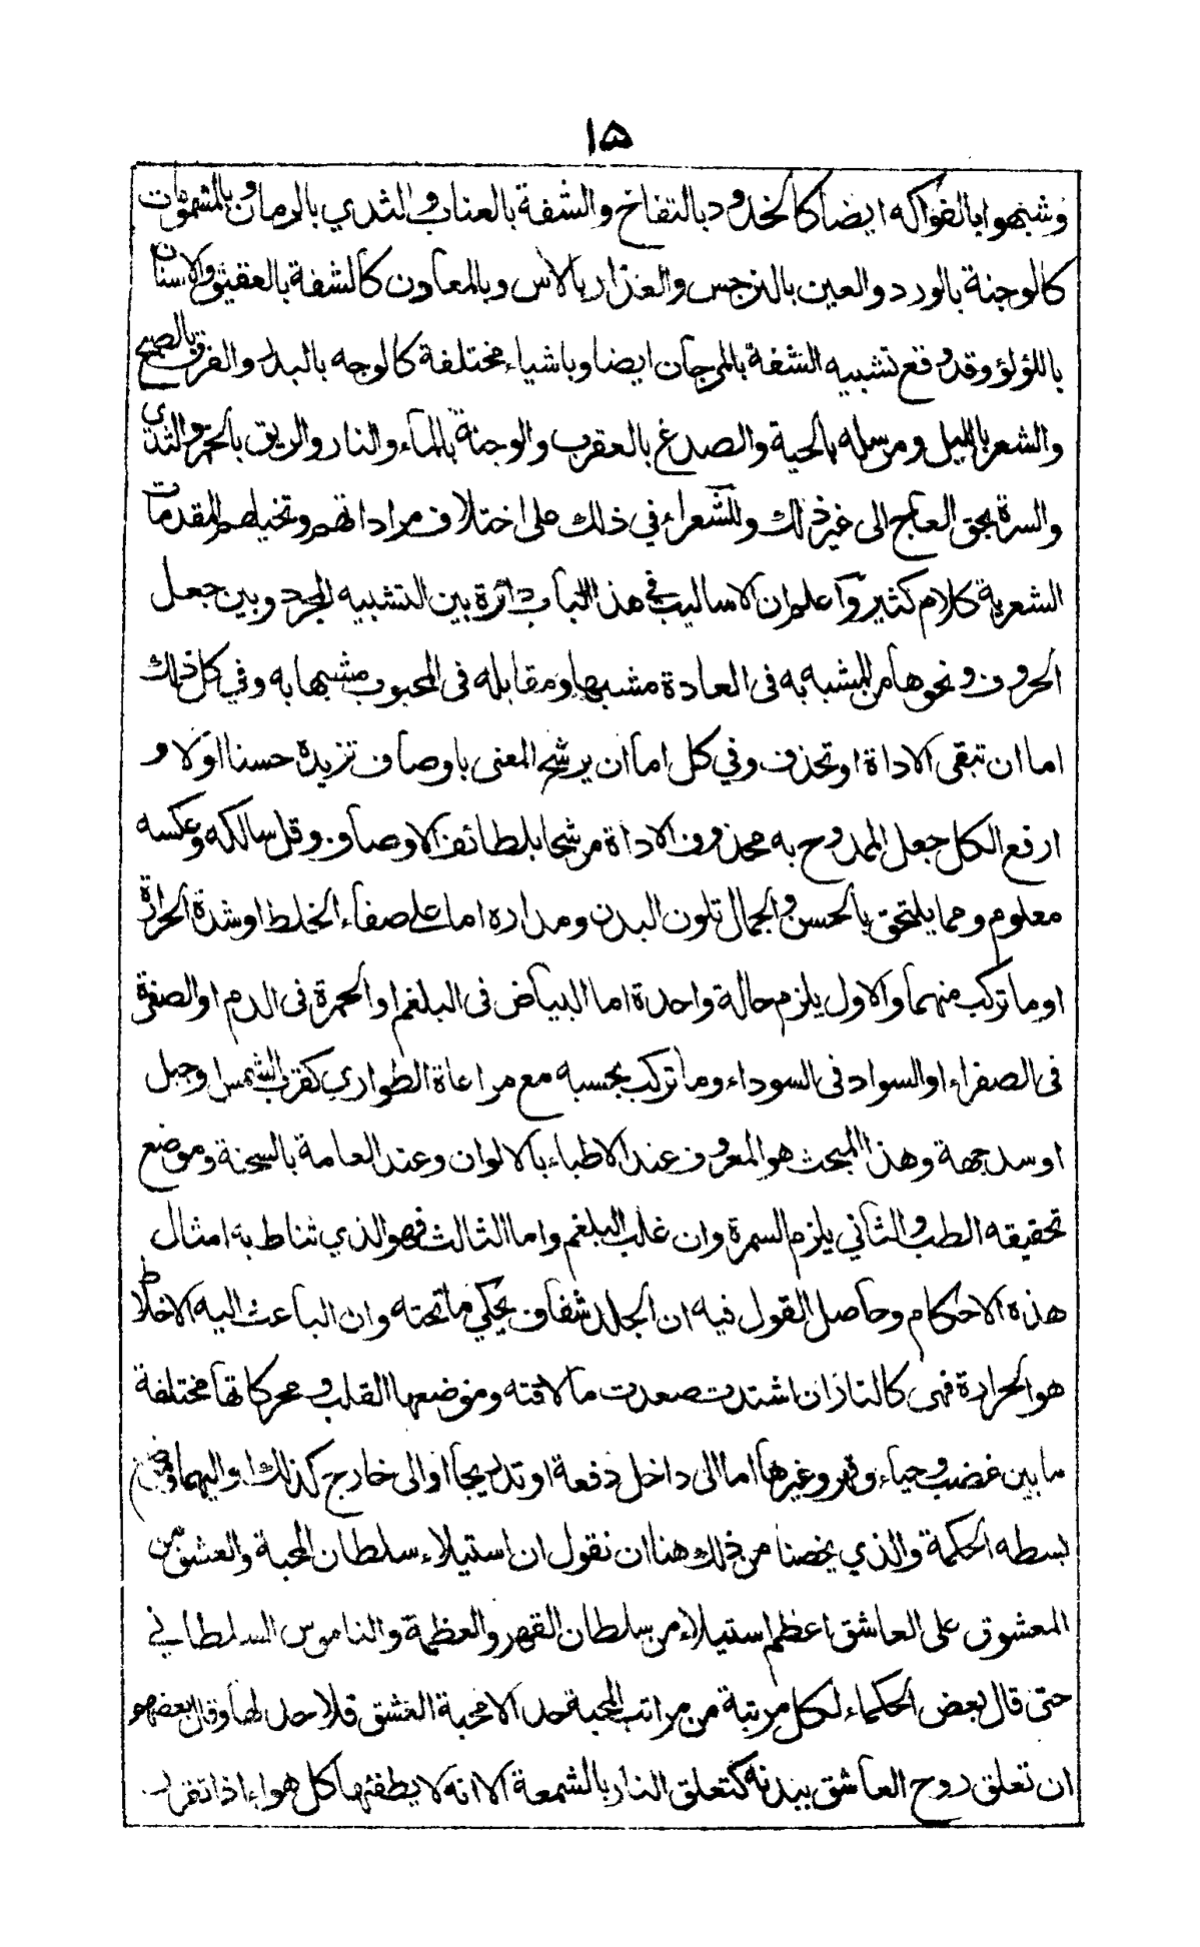 ١٥
وشبهوا بالفواكه ايضا كالخدود بالتفاح والشفة بالعناب والثدي بالرمان وبالمشمومات
كالوجنة بالورد والعين بالنرجس والعذار بالآس وبالمعادن كالشفة بالعقيق والاسنان
باللؤلؤ وقد وقع تشبيه الشفة بالمرجان ايضا وباشياء مختلفة كالوجه بالبدر والفرق بالصبح
والشعر بالليل ومرسله بالحية والصدغ بالعقرب والوجنة بالماء والنار والريق بالخمر والثدي
والسرة بحق العاج الى غير ذلك وللشعراء في ذلك على اختلاف مراداتهم وتخيلهم المقدمات
الشعرية كلام كثير واعلم ان الاساليب في هذا الباب دائرة بين التشبيه المجرد وبين جعل
الحروف ونحوها من المشبه به في العادة مشبها ومقابله في المحبوب مشبها به وفي كل ذلك
اما ان تبقى الاداة او تحذف وفي كل اما ان يرشح المعنى باوصاف تزيده حسنا اولا و
ارفع الكل جعل الممدوح به محذوف الاداة مرشحا بلطائف الاوصاف وقل سالكه وعكسه
معلوم ومما يلتحق بالحسن والجمال تلون البدن ومداره اما على صفاء الخلط او شدة الحرارة
او ما تركب منهما والاول يلزم حالة واحدة اما البياض في البلغم او الحمرة في الدم او الصفرة
في الصفراء او السواد في السوداء وما تركب بحسبه مع مراعاة الطواري كقرب الشمس وجبل
او سد جهة وهذا المبحث هو المعروف عند الاطباء بالالوان وعند العامة بالسحنة وموضع
تحقيقه الطب والثاني يلزم السمرة وان غلب البلغم واما الثالث فهو الذي تناط به امثال
هذه الاحكام وحاصل القول فيه ان الجلد شفاف يحكي ما تحته وان الباعث اليه الاخلاط
هو الحرارة فهي كالنار ان اشتدت صعدت ما لاقته وموضعها القلب ومحركاتها مختلفة
ما بين غضب وحياء وقهر وغيرها اما الى داخل دفعة او تدريجا او الى خارج كذلك او اليهما
بسطه الحكمة والذي يخصنا من ذلك هنا ان نقول ان استيلاء سلطان المحبة والعشق من
المعشوق على العاشق اعظم استيلاء من سلطان القهر والعظمة والناموس السلطاني
حتى قال بعض الحكماء لكل مرتبة من مراتب المحبة حد الا محبة العشق فلا حد لها وقال بعضهم
ان تعلق روح العاشق ببدنه كتعلق النار بالشمعة الا انه لا يطفئها كل هواء اذا تقرر